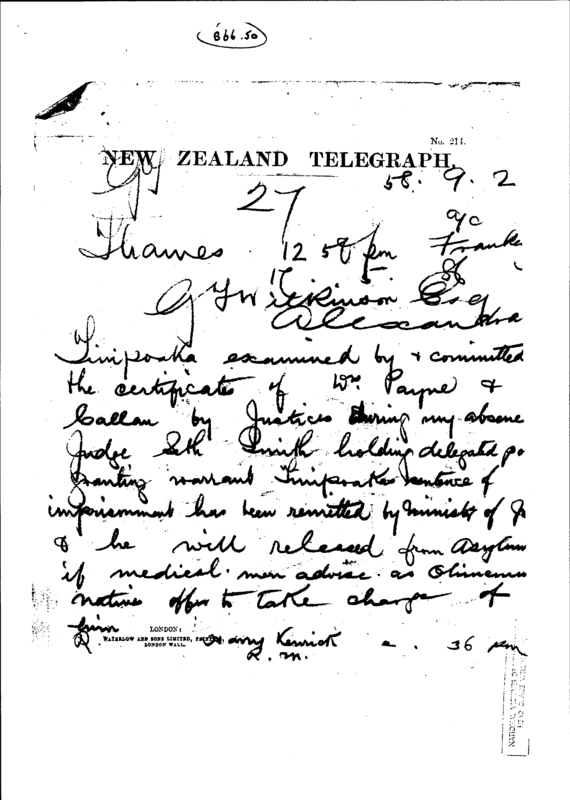 B66.50
No. 214.
NEW ZEALAND TELEGRAPH.
58. 9. 2
27
a/c
Thames 12 58 pm Franke
17 5 86
G T Wilkinson Esq
Alexandra
Timipoaka examined by & committed
the certificates of Wm Payne &
Callan by Justices during my absence
Judge Seth Smith holding delegated po
granting warrant Timipoakas sentence of
imprisonment has been remitted by Minister of J
& he will released from Asylum
if medical men advise as Ohinemu
natives offer to take charge of
him
Harry Kenrick 2. 36 pm
R. M.
LONDON:
WATERLOW AND SONS LIMITED,
LONDON WALL.